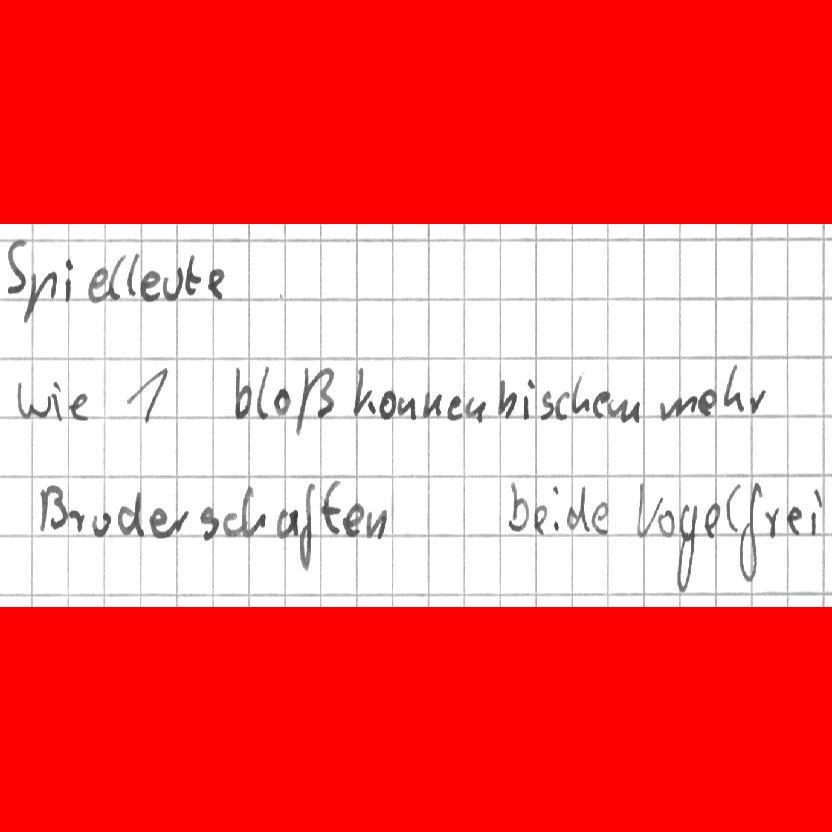 Spielleute
Wie 1 bloß konnen bischen mehr
Bruderschaften beide Vogelfrei